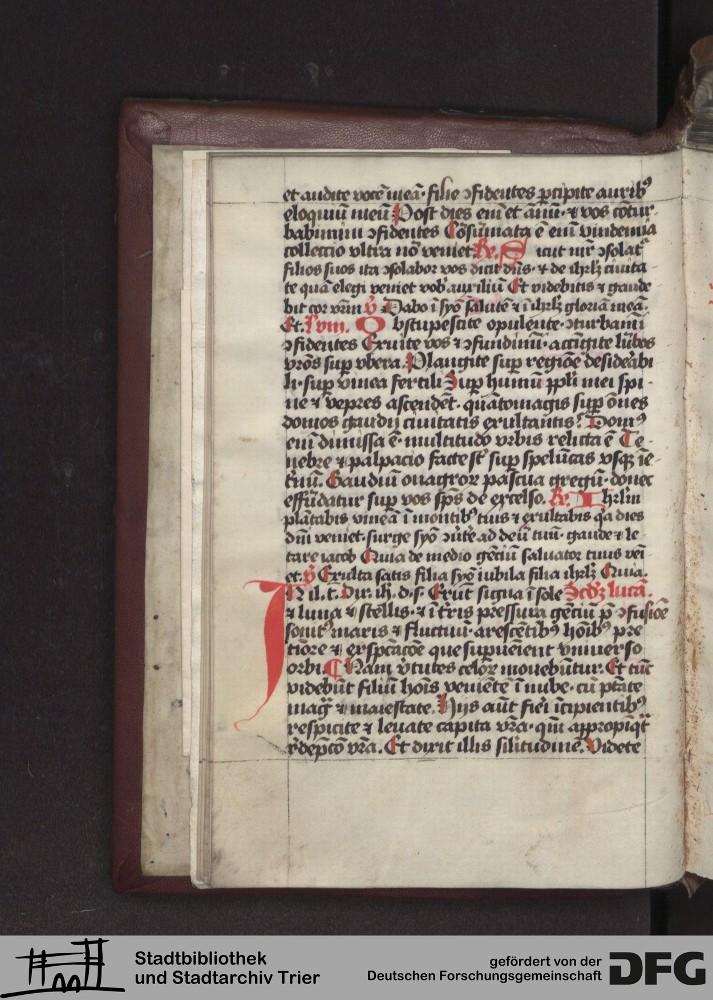 et audite vocē meā· filie ɔfidentes ꝑcipite auribꝰ
eloquiū meū Post dies em̄ et annū· ⁊ vos cōtur-
babimini ɔfidentes Cōsūmata ē em̄ vindemia
colleccio vltra nō veniet R̄e. Sicut mr̄ ɔsolatᵘ
filios suos ita ɔsolabor vos dicit dn̄s· ⁊ de ihrlꝫ ciuita
te quā elegi veniet vob̄ auxiliū Et videbitis ⁊ gaude
bit cor vrm̄ v̄ Dabo ī syō salutē ⁊ ī ihrlꝫ gloriā meā.
Et. Obstupescite opulēte· ɔturbamī
ɔfidentes Exuite vos ⁊ ɔfundimī· accīgite lūbos
vrōs suꝑ vbera· Plangite suꝑ regiōe desideābi
li· suꝑ vinea fertili Suꝑ humū ppl̄i mei spi-
ne ⁊ vepres ascendēt· quātomagis suꝑ oūes
domos gaudij ciuitatis exultantis? Domꝰ
em̄ dimissa ē· multitudo vrbis relicta ē Te-
nebre ⁊ palpacio facte sт̄ suꝑ spelūcas vsqꝫ ī e-
t̄nū. Gaudiū onagroꝝ pascua gregū· donec
effūdatur suꝑ vos sp̄s de excelso. R̄e. Ihrlm
plātabis vineā ī montibꝰ tuis ⁊ exultabis qa dies
dn̄i veniet· surge syō ɔūte ad deū tuū· gaude ⁊ le
tare iacob Quia de medio gēciū saluator tuus veī
et. v̄ Exulta satis filia syō iubila filia ihrlꝫ Quia.
In il. t. Dix. ih̄. d. s. Erūt signa ī sole Scd̄ꝫ lucā.
⁊ luna ⁊ stellis· ⁊ ī t̄ris pressura gēciū p̄ ɔfusiōe
sonitꝰ maris ⁊ fluctuū· arescētibꝰ hoībꝰ pre
tīore ⁊ exspcācōe que supuēient vniuerso
orbi. Nam v̄tutes celoꝝ mouebūtur. Et tūc
videbūt filiū hoīs veniētē ī nube· cū ptāte
magᵃ ⁊ maiestate. Hijs aūt fieī īcipientibꝰ
respicite ⁊ leuate capita vrā· qm̄ appropiqᵗ
r̄dēpcō vrā. Et dixit illis silitudinē. Videte
Stadtbibliothek
und Stadtarchiv Trier
gefördert von der
Deutschen Forschungsgemeinschaft
DFG